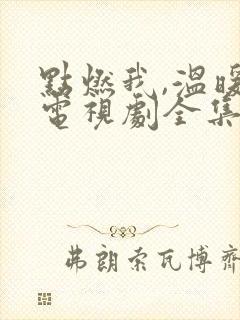 點燃我,溫暖
電視劇全集
弗朗索瓦博齊